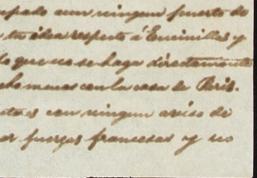 aun ningun puerto de
tu idea respecto á Encinillas y
lo que no se haga directamente
cho menos con la casa de Paris.
con ningun aviso de
fuerzas francesas y no